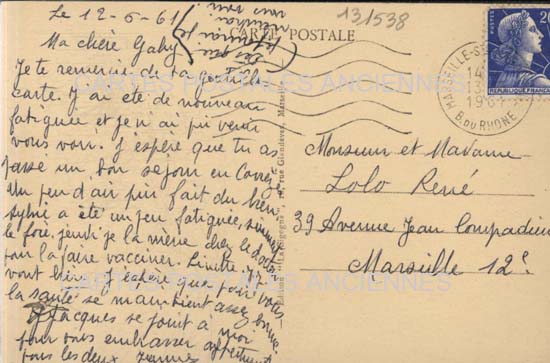 Le 12-6-61
Ma chère Gaby
Je te remercie de ta gentille
carte. J'ai été de nouveau
fatiguée et je n'ai pu venir
vous voir. J'espère que tu as
passé un bon séjour en Corrèze
Un peu d'air pur fait du bien
Sylvie a été un peu fatiguée,
le foie, jeudi je la mène chez le docteur
pour la faire vacciner.
vont bien. J'espère que pour vous
la santé se maintient assez bonne
Jacques se joint à moi
pour vous embrasser affectueusement
tous les deux
CARTE POSTALE
131538
20
REPUBLIQUE FRANCAISE
MARSEILLE
14
13
1961
B. DU RHONE
Monsieur et Madame
Lolo René
39 Avenue Jean Compadieu
Marseille 12e
CARTES POSTALES ANCIENNES
CARTES POSTALES ANCIENNES